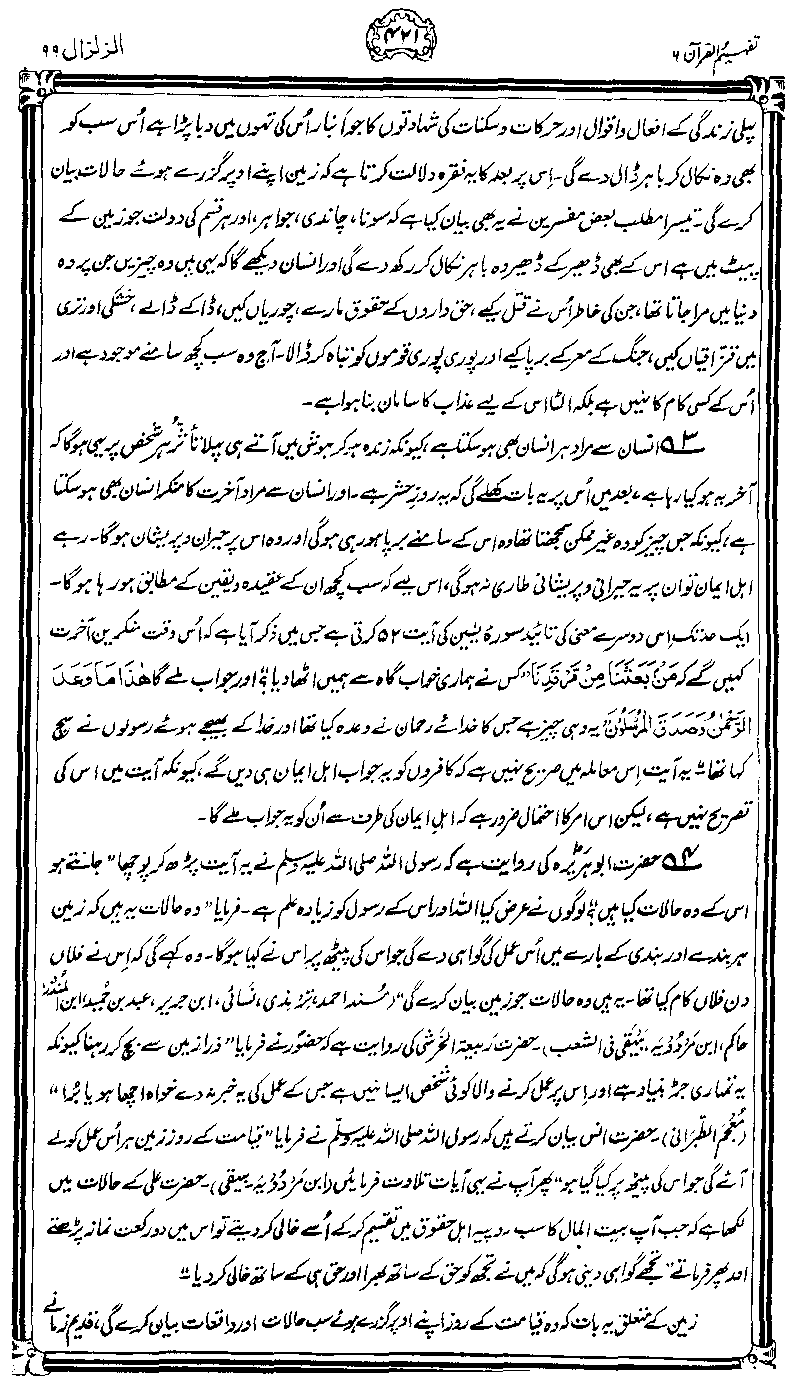 تفہیم القرآن ۶
۴۲۱
الزلزال ۹۹
پہلی زندگی کے افعال و اقوال اور حرکات و سکنات کی شہادتوں کا جو انبار اُس کی تہوں میں دبا پڑا ہے اُس سب کو
بھی وہ نکال کر باہر ڈال دے گی۔ اِس پر بعد کا یہ فقرہ دلالت کرتا ہے کہ زمین اپنے اوپر گزرے ہوئے حالات بیان
کرے گی۔ تیسرا مطلب بعض مفسرین نے یہ بھی بیان کیا ہے کہ سونا، چاندی، جواہر، اور ہر قسم کی دولت جو زمین کے
پیٹ میں ہے اس کے بھی ڈھیر کے ڈھیر وہ باہر نکال کر رکھ دے گی اور انسان دیکھے گا کہ یہی ہیں وہ چیزیں جن پر وہ
دنیا میں مرا جاتا تھا، جن کی خاطر اُس نے قتل کیے، حق داروں کے حقوق مارے، چوریاں کیں، ڈاکے ڈالے، خشکی اور تری
میں قزاقیاں کیں، جنگ کے معرکے برپا کیے اور پوری پوری قوموں کو تباہ کر ڈالا۔ آج وہ سب کچھ سامنے موجود ہے اور
اُس کے کسی کام کا نہیں ہے بلکہ الٹا اس کے لیے عذاب کا سامان بنا ہوا ہے۔
۳ انسان سے مراد ہر انسان بھی ہو سکتا ہے، کیونکہ زندہ ہو کر ہوش میں آتے ہی پہلا تأثر ہر شخص پر یہی ہوگا کہ
آخر یہ ہو کیا رہا ہے، بعد میں اُس پر یہ بات کھلے گی کہ یہ روزِ حشر ہے۔ اور انسان سے مراد آخرت کا منکر انسان بھی ہو سکتا
ہے، کیونکہ جس چیز کو وہ غیر ممکن سمجھتا تھا وہ اس کے سامنے برپا ہو رہی ہوگی اور وہ اس پر حیران و پریشان ہوگا۔ رہے
اہل ایمان تو ان پر یہ حیرانی و پریشانی طاری نہ ہوگی، اس لیے کہ سب کچھ ان کے عقیدہ و یقین کے مطابق ہو رہا ہوگا۔
ایک حد تک اِس دوسرے معنی کی تائید سورۂ یٰسین کی آیت ۵۲ کرتی ہے جس میں ذکر آیا ہے کہ اُس وقت منکرین آخرت
کہیں گے کہ مَنْۢ بَعَثَنَا مِنْ مَّرْقَدِنَا "کس نے ہماری خواب گاہ سے ہمیں اٹھا دیا؟" اور جواب ملے گا هٰذَا مَا وَعَدَ
الرَّحْمٰنُ وَصَدَقَ الْمُرْسَلُوْنَ "یہ وہی چیز ہے جس کا خدائے رحمان نے وعدہ کیا تھا اور خدا کے بھیجے ہوئے رسولوں نے سچ
کہا تھا"۔ یہ آیت اِس معاملہ میں صریح نہیں ہے کہ کافروں کو یہ جواب اہل ایمان ہی دیں گے، کیونکہ آیت میں اس کی
تصریح نہیں ہے، لیکن اس امر کا احتمال ضرور ہے کہ اہل ایمان کی طرف سے اُن کو یہ جواب ملے گا۔
۴ حضرت ابوہریرہ کی روایت ہے کہ رسول اللہ صلی اللہ علیہ وسلم نے یہ آیت پڑھ کر پوچھا "جانتے ہو
اس کے وہ حالات کیا ہیں؟" لوگوں نے عرض کیا اللہ اور اس کے رسول کو زیادہ علم ہے۔ فرمایا "وہ حالات یہ ہیں کہ زمین
ہر بندے اور بندی کے بارے میں اُس عمل کی گواہی دے گی جو اس کی پیٹھ پر اس نے کیا ہوگا۔ وہ کہے گی کہ اِس نے فلاں
دن فلاں کام کیا تھا۔ یہ ہیں وہ حالات جو زمین بیان کرے گی" (مُسند احمد، ترمذی، نسائی، ابن جریر، عبد بن حمید، ابن المنذر،
حاکم، ابن مردویہ، بیہقی فی الشعب)۔ حضرت ربیعۃ الخرشی کی روایت ہے کہ حضورؐ نے فرمایا "ذرا زمین سے بچ کر رہنا کیونکہ
یہ تمہاری جڑ بنیاد ہے اور اِس پر عمل کرنے والا کوئی شخص ایسا نہیں ہے جس کے عمل کی یہ خبر نہ دے خواہ اچھا ہو یا بُرا"
(معجم الطبرانی)۔ حضرت انس بیان کرتے ہیں کہ رسول اللہ صلی اللہ علیہ وسلم نے فرمایا "قیامت کے روز زمین ہر اُس عمل کو لے
آئے گی جو اس کی پیٹھ پر کیا گیا ہو" پھر آپ نے یہی آیات تلاوت فرمائیں (ابن مردویہ، بیہقی)۔ حضرت علی کے حالات میں
لکھا ہے کہ جب آپ بیت المال کا سب روپیہ اہل حقوق میں تقسیم کر کے اُسے خالی کر دیتے تو اس میں دو رکعت نماز پڑھتے
اور پھر فرماتے "تجھے گواہی دینی ہوگی کہ میں نے تجھ کو حق کے ساتھ بھرا اور حق ہی کے ساتھ خالی کر دیا"
زمین کے متعلق یہ بات کہ وہ قیامت کے روز اپنے اوپر گزرے ہوئے سب حالات اور واقعات بیان کرے گی، قدیم زمانے